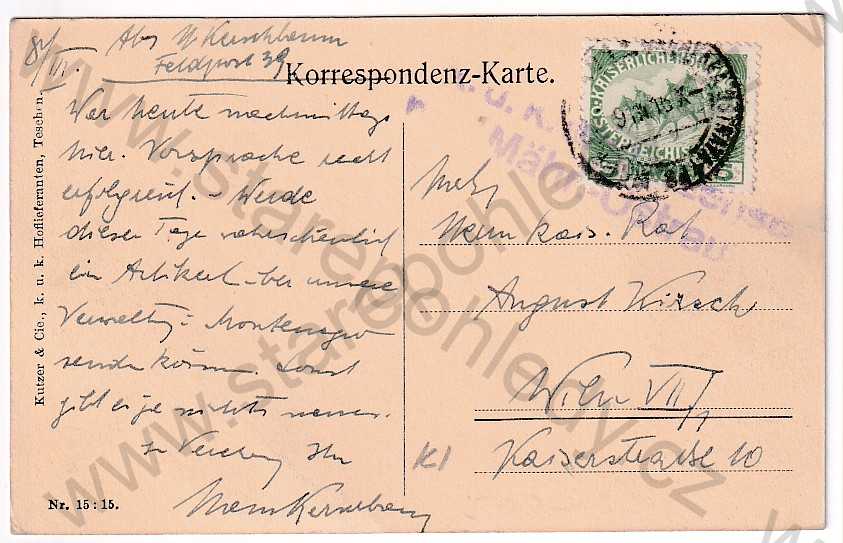 8/III. Abs. Kirschbaum
Feldpost 39
Korrespondenz-Karte.
War heute nachmittags
hier. Vorsprache recht
erfolgreich. – Werde
dieser Tage wahrscheinlich
ein Artikel über unsere
Verwaltung: Montenegro
senden können. Sonst
gibt es ja nichts neues.
In Verehrung Ihr
Kutzer & Cie., k. u. k. Hoflieferanten, Teschen.
Nr. 15 : 15.
KAISERLICHE KÖNIGLICHE ÖSTERREICHISCHE POST
5
K. u. K.
Mähr. Ostrau
Herrn kais. Rat
August Wirsch
Wien VII/1
Kaiserstrasse 10
K1
www.starepohledy.cz